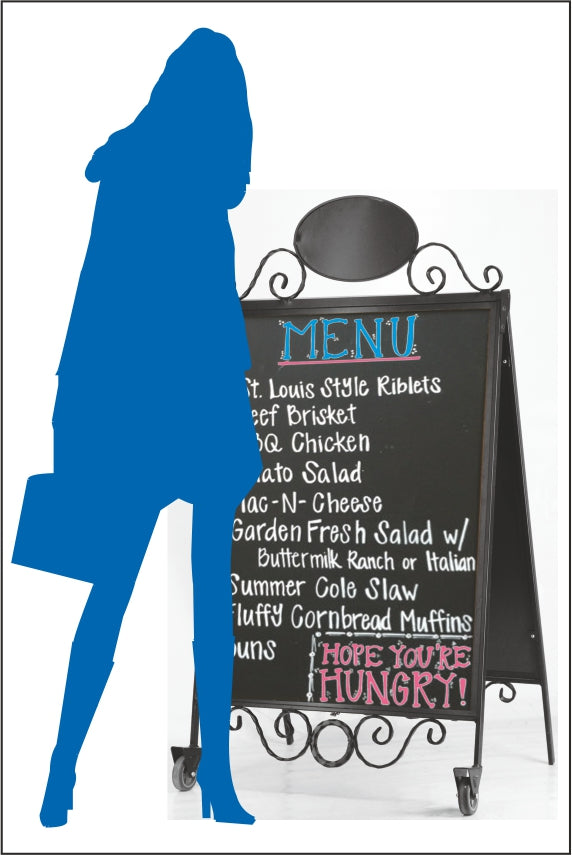 MENU
St. Louis Style Riblets
eef Brisket
BQ Chicken
ato Salad
Mac-N-Cheese
Garden Fresh Salad w/
Buttermilk Ranch or Italian
Summer Cole Slaw
Fluffy Cornbread Muffins
uns
HOPE YOU'RE
HUNGRY!